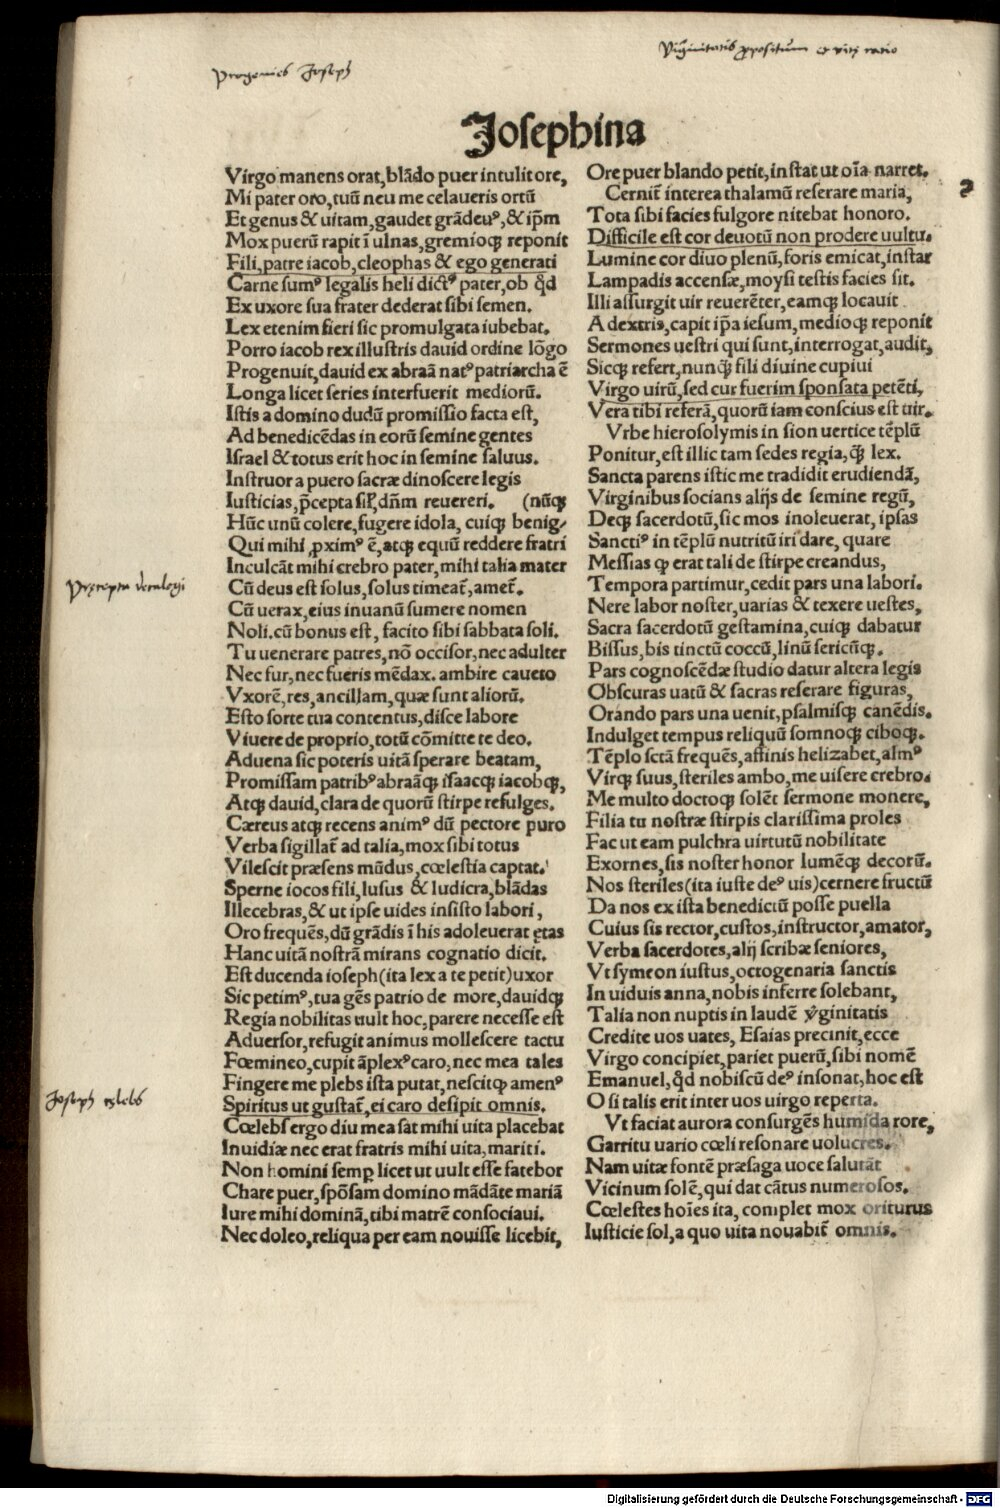 Virginitatis propositum et vitę ratio
Progenies Joseph
Josephina
Virgo manens orat, blãdo puer intulit ore,
Mi pater oro, tuũ neu me celaueris ortũ
Et genus & uitam, gaudet grãdeuꝰ, & ip̃m
Mox puerũ rapit ĩ ulnas, gremioqꝫ reponit
Fili, patre iacob, cleophas & ego generati
Carne sumꝰ legalis heli dictꝰ pater, ob qd̃
Ex uxore sua frater dederat sibi semen.
Lex etenim fieri sic promulgata iubebat.
Porro iacob rex illustris dauid ordine lõgo
Progenuit, dauid ex abraã natꝰ patriarcha ẽ
Longa licet series interfuerit mediorũ.
Istis a domino dudũ promissio facta est,
Ad benedicẽdas in eorũ semine gentes
Israel & totus erit hoc in semine saluus.
Instruor a puero sacræ dinoscere legis
Iusticias, p̃cepta sil̃, dñm reuereri. (nũqꝫ
Hũc unũ colere, fugere idola, cuiqꝫ benig-
Qui mihi ꝓximꝰ ẽ, atqꝫ equũ reddere fratri
Inculcãt mihi crebro pater, mihi talia mater
Cũ deus est solus, solus timeat̃, amet̃.
Cũ uerax, eius inuanũ sumere nomen
Noli. cũ bonus est, facito sibi sabbata soli.
Tu uenerare patres, nõ occisor, nec adulter
Nec fur, nec fueris mẽdax. ambire caueto
Vxorẽ, res, ancillam, quæ sunt aliorũ.
Esto sorte tua contentus, disce labore
Viuere de proprio, totũ cõmitte te deo.
Aduena sic poteris uitã sperare beatam,
Promissam patribꝰ abraãqꝫ isaacqꝫ iacobqꝫ,
Atqꝫ dauid, clara de quorũ stirpe refulges.
Cæreus atqꝫ recens animꝰ dũ pectore puro
Verba sigillat̃ ad talia, mox sibi totus
Vilescit præsens mũdus, cœlestia captat.
Sperne iocos fili, lusus & ludicra, blãdas
Illecebras, & ut ipse uides insisto labori,
Oro frequẽs, dũ grãdis ĩ his adoleuerat ętas
Hanc uitã nostrã mirans cognatio dicit.
Est ducenda ioseph (ita lex a te petit) uxor
Sic petimꝰ, tua gẽs patrio de more, dauidqꝫ
Regia nobilitas uult hoc, parere necesse est
Aduersor, refugit animus mollescere tactu
Fœmineo, cupit ãplexꝰ caro, nec mea tales
Fingere me plebs ista putat, nescitqꝫ amenꝰ
Spiritus ut gustat̃, ei caro desipit omnis.
Cœlebs ergo diu mea sat mihi uita placebat
Inuidiæ nec erat fratris mihi uita, mariti.
Non homini semꝑ licet ut uult esse fatebor
Chare puer, spõsam domino mãdãte mariã
Iure mihi dominã, tibi matrẽ consociaui.
Nec doleo, reliqua per eam nouisse licebit,
Pręcepta decalogi
Joseph cęlebs
Ore puer blando petit, instat ut oĩa narret.
Cernit̃ interea thalamũ reserare maria,
Tota sibi facies fulgore nitebat honoro.
Difficile est cor deuotũ non prodere uultu.
Lumine cor diuo plenũ, foris emicat, instar
Lampadis accensæ, moysi testis facies sit.
Illi assurgit uir reuerẽter, eamqꝫ locauit
A dextris, capit ip̃a iesum, medioqꝫ reponit
Sermones uestri qui sunt, interrogat, audit,
Sicqꝫ refert, nunq̃ꝫ fili diuine cupiui
Virgo uirũ, sed cur fuerim sponsata petẽti,
Vera tibi referã, quorũ iam conscius est uir.
Vrbe hierosolymis in sion uertice tẽplũ
Ponitur, est illic tam sedes regia, q̃ꝫ lex.
Sancta parens istic me tradidit erudiendã,
Virginibus socians alijs de semine regũ,
Deqꝫ sacerdotũ, sic mos inoleuerat, ipsas
Sanctiꝰ in tẽplũ nutritũ iri dare, quare
Messias ꝙ erat tali de stirpe creandus,
Tempora partimur, cedit pars una labori.
Nere labor noster, uarias & texere uestes,
Sacra sacerdotũ gestamina, cuiqꝫ dabatur
Bissus, bis tinctũ coccũ, linũ sericũqꝫ.
Pars cognoscẽdæ studio datur altera legis
Obscuras uatũ & sacras reserare figuras,
Orando pars una uenit, psalmisqꝫ canẽdis.
Indulget tempus reliquũ somnoqꝫ ciboqꝫ.
Tẽplo sctã frequẽs, affinis helizabet, almꝰ
Virqꝫ suus, steriles ambo, me uisere crebro.
Me multo doctoqꝫ solẽt sermone monere,
Filia tu nostræ stirpis clarissima proles
Fac ut eam pulchra uirtutũ nobilitate
Exornes, sis noster honor lumẽqꝫ decorũ.
Nos steriles (ita iuste deꝰ uis) cernere fructũ
Da nos ex ista benedictũ posse puella
Cuius sis rector, custos, instructor, amator,
Verba sacerdotes, alij scribæ seniores,
Vt symeon iustus, octogenaria sanctis
In uiduis anna, nobis inferre solebant,
Talia non nuptis in laudẽ v̾ginitatis
Credite uos uates, Esaias precinit, ecce
Virgo concipiet, pariet puerũ, sibi nomẽ
Emanuel, qd̃ nobiscũ deꝰ insonat, hoc est
O si talis erit inter uos uirgo reperta.
Vt faciat aurora consurgẽs humida rore,
Garritu uario cœli resonare uolucres.
Nam uitæ fontẽ præsaga uoce salutãt
Vicinum solẽ, qui dat cãtus numerosos.
Cœlestes hoĩes ita, complet mox oriturus
Iusticie sol, a quo uita nouabit̃ omnis.
Digitalisierung gefördert durch die Deutsche Forschungsgemeinschaft - DFG